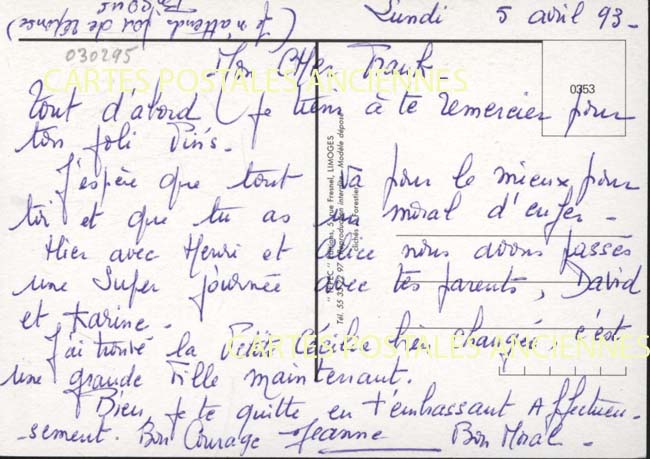 Lundi 5 avril 93 -
(Je n'attends pas de réponse)
030295
CARTES POSTALES ANCIENNES
0353
Mon Cher Franck -
Tout d'abord je tiens à te remercier pour
ton joli Pin's -
J'espère que tout va pour le mieux pour
toi et que tu as un moral d'enfer -
Hier avec Henri et Alice nous avons passés
une Super journée avec tes parents, David
et Karine -
J'ai trouvé la Petite Cécile bien changée c'est
une grande Fille maintenant.
Bien, je te quitte en t'embrassant Affectueu-
-sement. Bon Courage Jeanne Bon Moral -
CARTES POSTALES ANCIENNES
Editions, 5, rue Fresnel, LIMOGES
Tél. 55 33 22 97 - Reproduction interdite - Modèle déposé
clichés Forestier